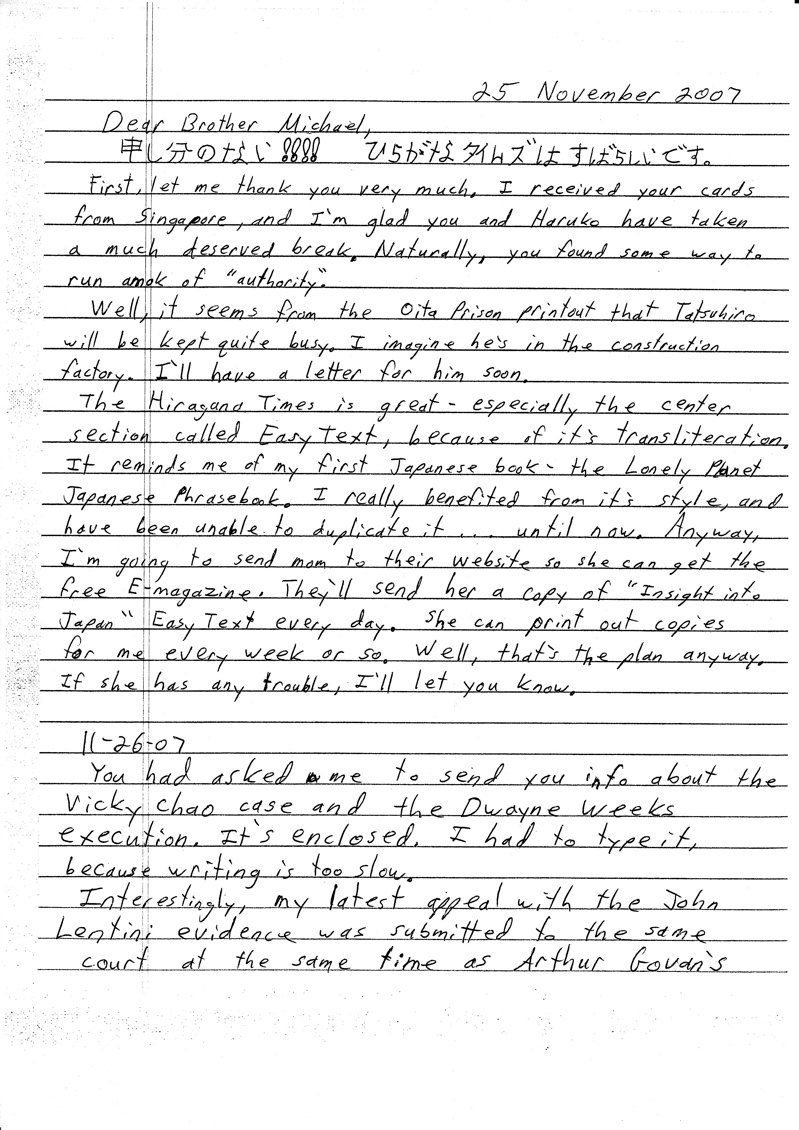 25 November 2007
Dear Brother Michael,
申し分のない!!!! ひらがなタイムズはすばらしいです。
First, let me thank you very much. I received your cards
from Singapore, and I'm glad you and Haruko have taken
a much deserved break. Naturally, you found some way to
run amok of "authority".
Well, it seems from the Oita Prison printout that Tatsuhiro
will be kept quite busy. I imagine he's in the construction
factory. I'll have a letter for him soon.
The Hiragana Times is great - especially the center
section called Easy Text, because of it's transliteration.
It reminds me of my first Japanese book - the Lonely Planet
Japanese Phrasebook. I really benefited from it's style, and
have been unable to duplicate it ... until now. Anyway,
I'm going to send mom to their website so she can get the
free E-magazine. They'll send her a copy of "Insight into
Japan" Easy Text every day. She can print out copies
for me every week or so. Well, that's the plan anyway.
If she has any trouble, I'll let you know.
11-26-07
You had asked me to send you info about the
Vicky Chao case and the Dwayne Weeks
execution. It's enclosed. I had to type it,
because writing is too slow.
Interestingly, my latest appeal with the John
Lentini evidence was submitted to the same
court at the same time as Arthur Govan's